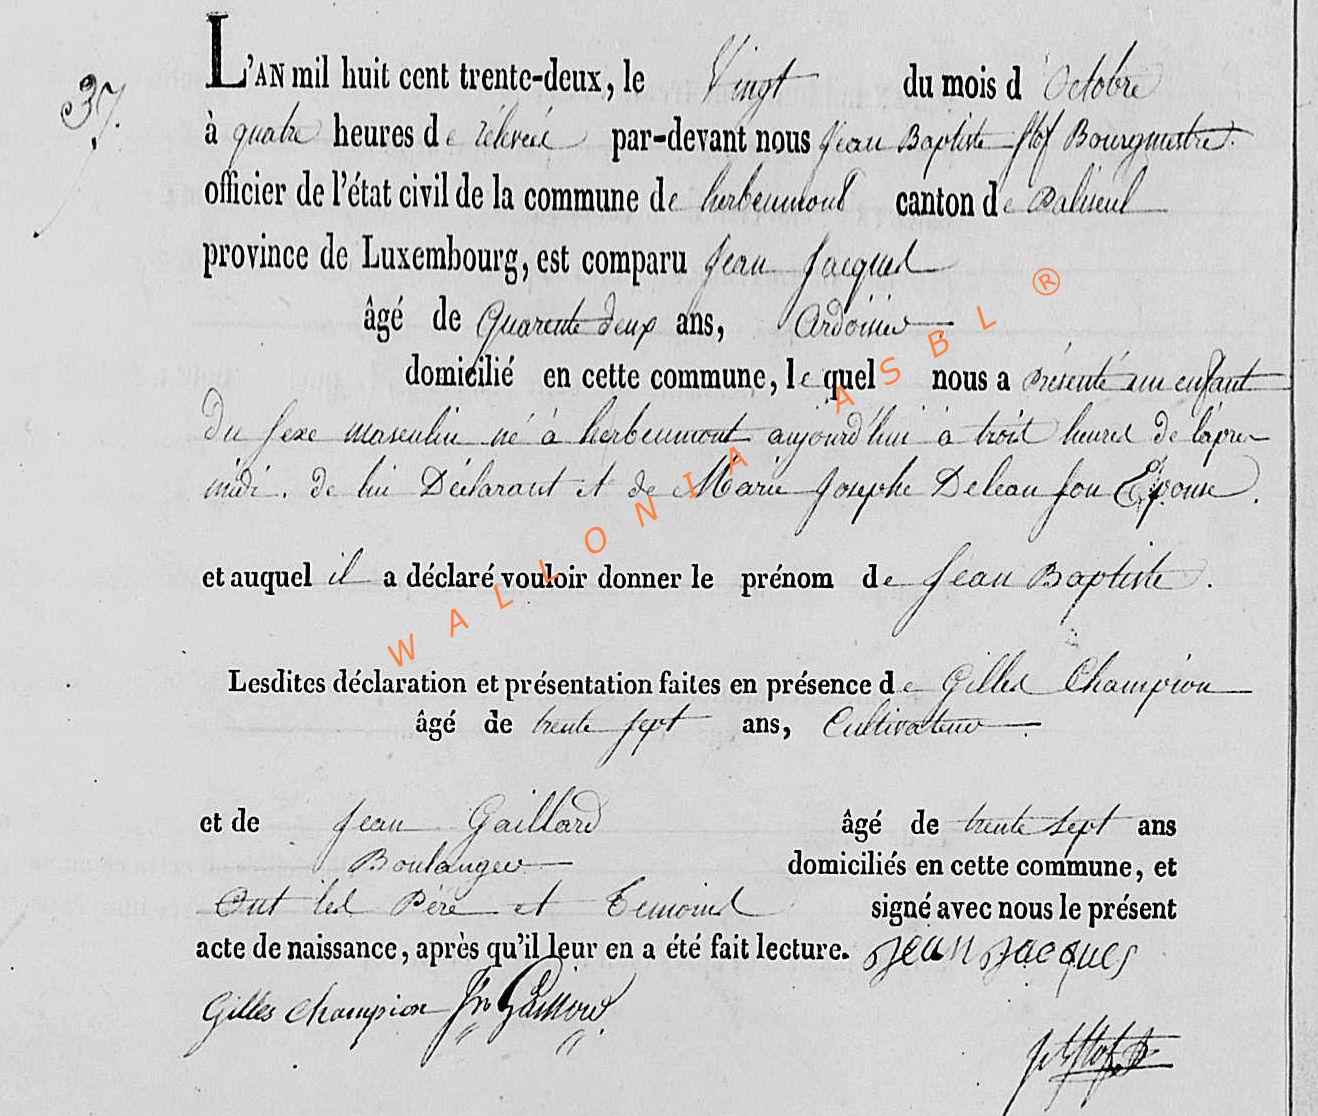 37.
L'AN mil huit cent trente-deux, le Vingt du mois d'Octobre
à quatre heures de relevée par-devant nous Jean Baptiste Stof Bourgmestre
officier de l'état civil de la commune de herbeumont canton de Paliseul
province de Luxembourg, est comparu Jean Jacques
âgé de Quarente deux ans, Ardoisier
domicilié en cette commune, le quel nous a présenté un enfant
Du sexe masculin né à herbeumont aujourd'hui à trois heures de l'après
midi. de lui Déclarant et de Marie Josephe Deleau son Epouse.
et auquel il a déclaré vouloir donner le prénom de Jean Baptiste.
Lesdites déclaration et présentation faites en présence de Gilles Champion
âgé de trente sept ans, Cultivateur
et de Jean Gaillard âgé de trente sept ans
Boulanger domiciliés en cette commune, et
Ont les Père et Temoins signé avec nous le présent
acte de naissance, après qu'il leur en a été fait lecture. Jean Jacques
Gilles Champion Jn Gaillard
WALLONIA ASBL ®